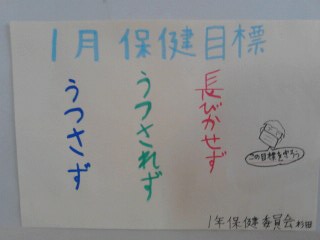 1月 保健目標
うつさず
うつされず
長びかせず
この目標を守ろう
1年保健委員会 杉田